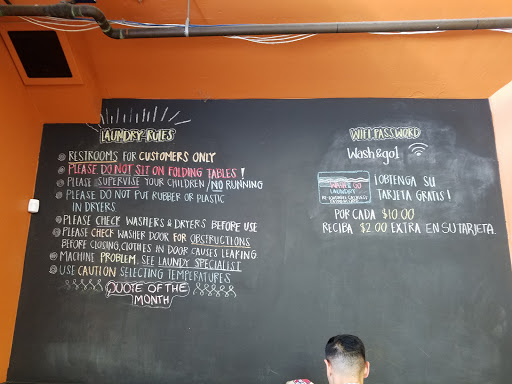 LAUNDRY RULES
RESTROOMS FOR CUSTOMERS ONLY
PLEASE DO NOT SIT ON FOLDING TABLES!
PLEASE SUPERVISE YOUR CHILDREN/NO RUNNING
PLEASE DO NOT PUT RUBBER OR PLASTIC
IN DRYERS
PLEASE CHECK WASHERS & DRYERS BEFORE USE
PLEASE CHECK WASHER DOOR FOR OBSTRUCTIONS
BEFORE CLOSING, CLOTHES IN DOOR CAUSES LEAKING
MACHINE PROBLEM, SEE LAUNDY SPECIALIST
USE CAUTION SELECTING TEMPERATURES
QUOTE OF THE
MONTH
WIFI PASSWORD
Wash&go!
WASH & GO
LAUNDRY
¡OBTENGA SU
TARJETA GRATIS!
POR CADA $10.00
RECIBA $2.00 EXTRA EN SU TARJETA.